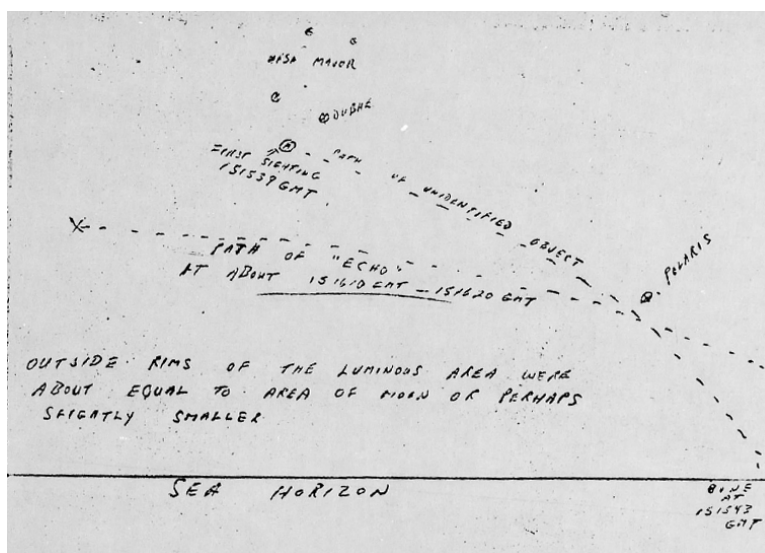 URSA MAJOR
DUBHE
FIRST SIGHTING
151539 GMT
PATH OF UNIDENTIFIED OBJECT
POLARIS
PATH OF "ECHO"
AT ABOUT 151610 GMT - 151620 GMT
OUTSIDE RIMS OF THE LUMINOUS AREA WERE
ABOUT EQUAL TO AREA OF MOON OR PERHAPS
SLIGHTLY SMALLER
SEA HORIZON
AT
151543
GMT